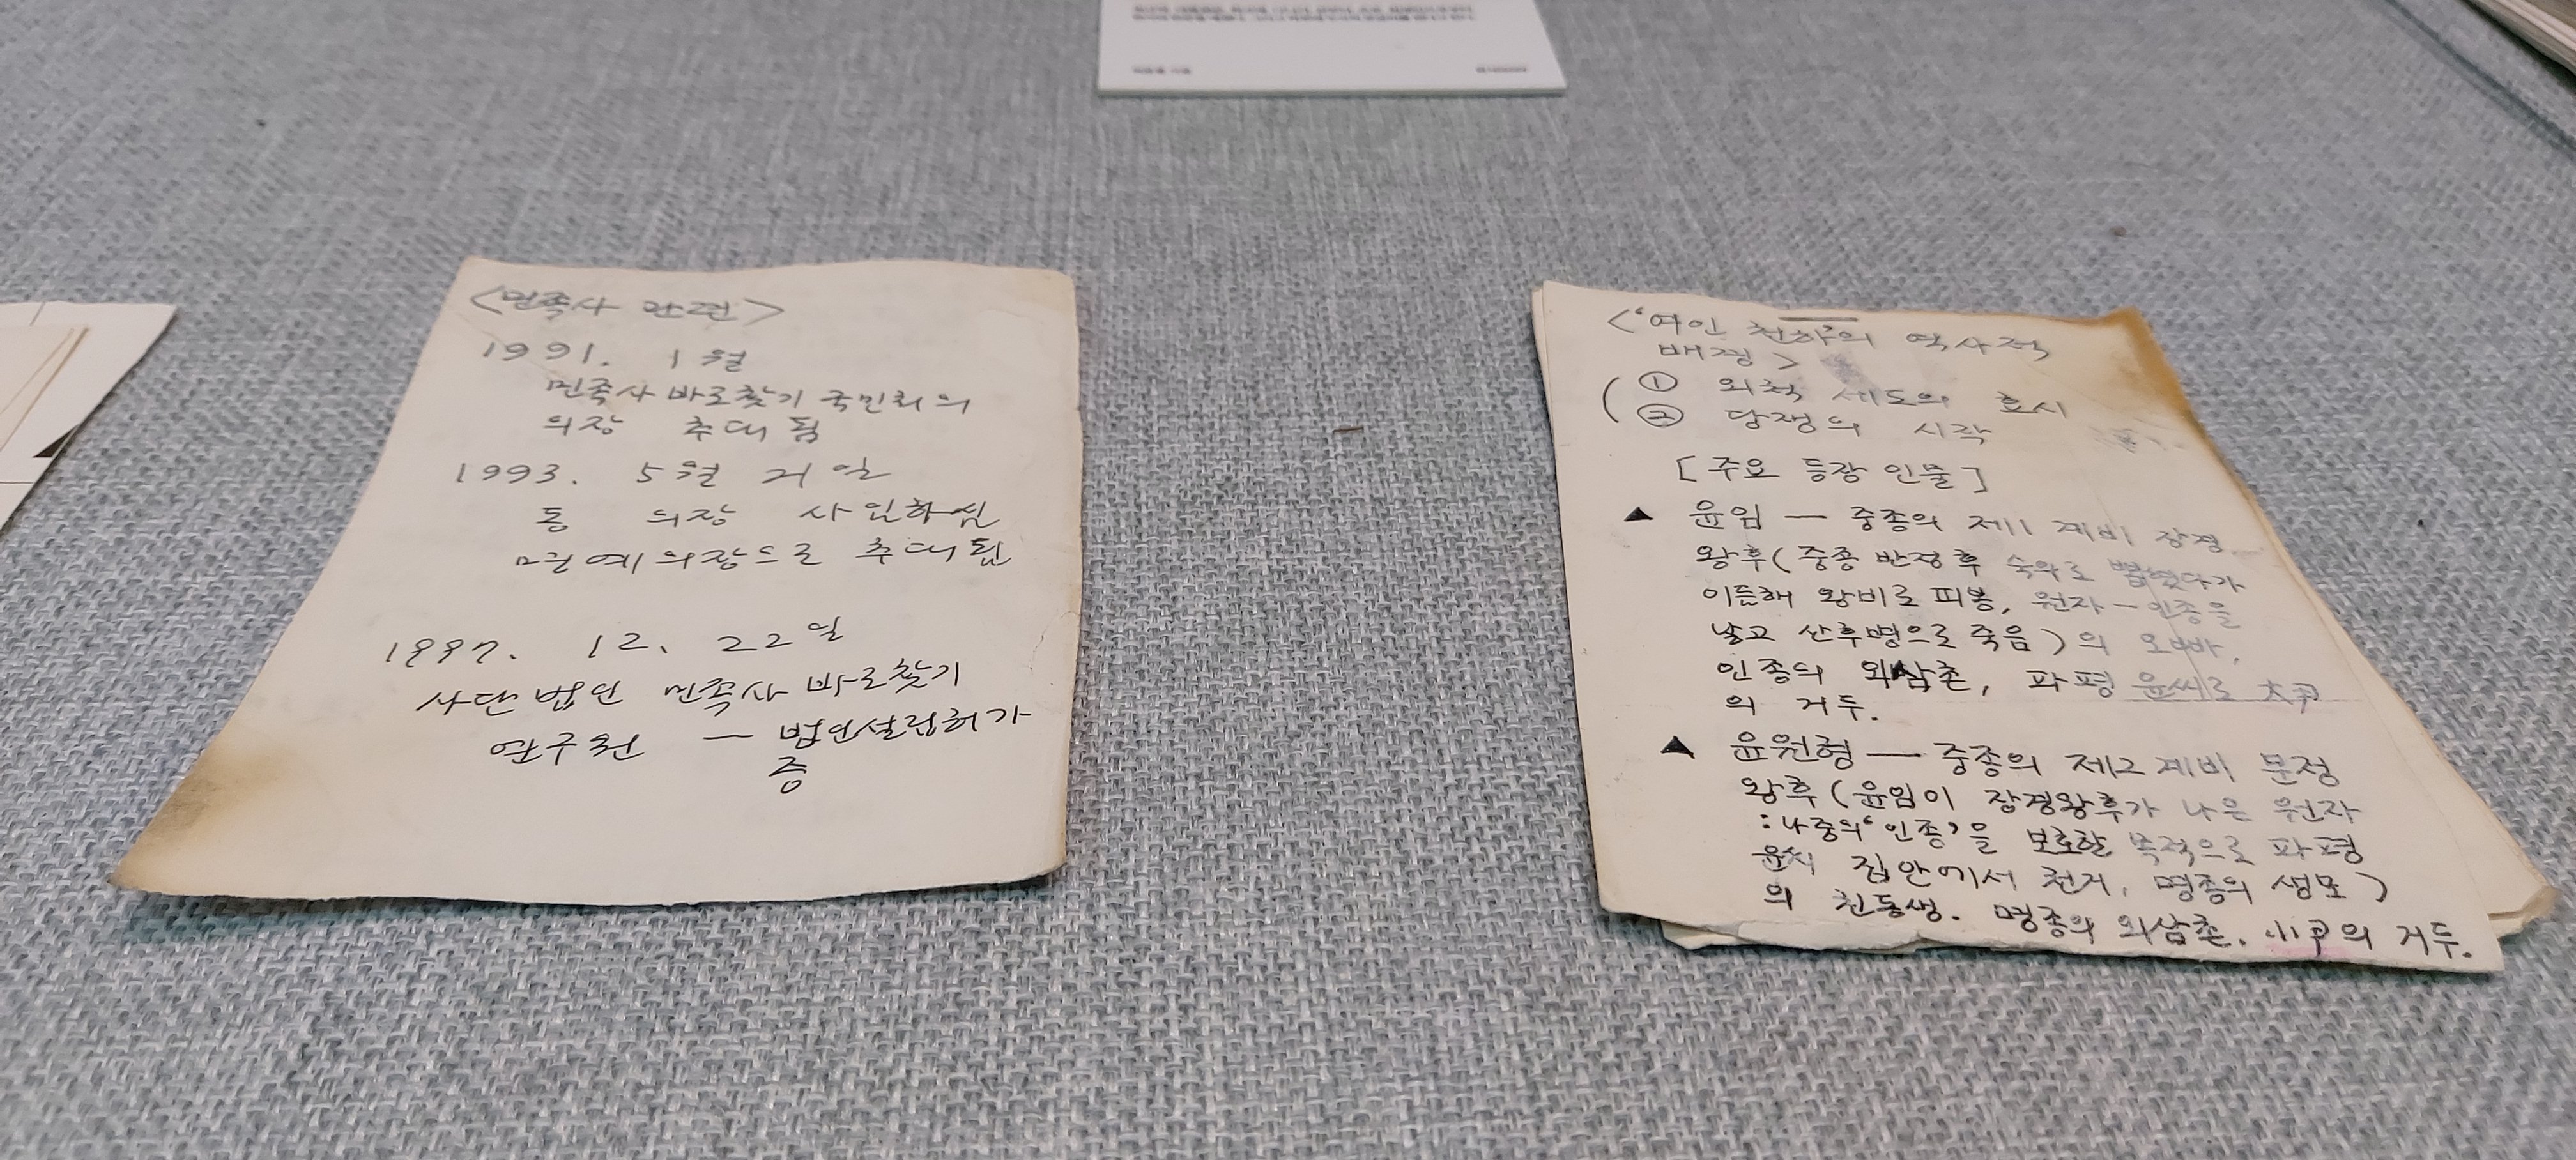 <민족사 관련>
1991. 1월
민족사 바로찾기 국민회의
의장 추대됨
1993. 5월 21일
동 의장 사임하심
명예의장으로 추대됨
1997. 12. 22일
사단법인 민족사 바로찾기
연구원 — 법인설립허가
증
<'여인 천하'의 역사적
배경>
① 외척 세도의 효시
② 당쟁의 시작
[주요 등장 인물]
▲ 윤임 — 중종의 제1 계비 장경
왕후(중종 반정 후 숙의로 뽑혔다가
이듬해 왕비로 피봉, 원자-인종을
낳고 산후병으로 죽음)의 오빠,
인종의 외삼촌, 파평 윤씨로 大尹
의 거두.
▲ 윤원형 — 중종의 제2 계비 문정
왕후(윤임이 장경왕후가 나은 원자
:나중의 '인종'을 보호할 목적으로 파평
윤씨 집안에서 천거, 명종의 생모)
의 친동생. 명종의 외삼촌. 小尹의 거두.